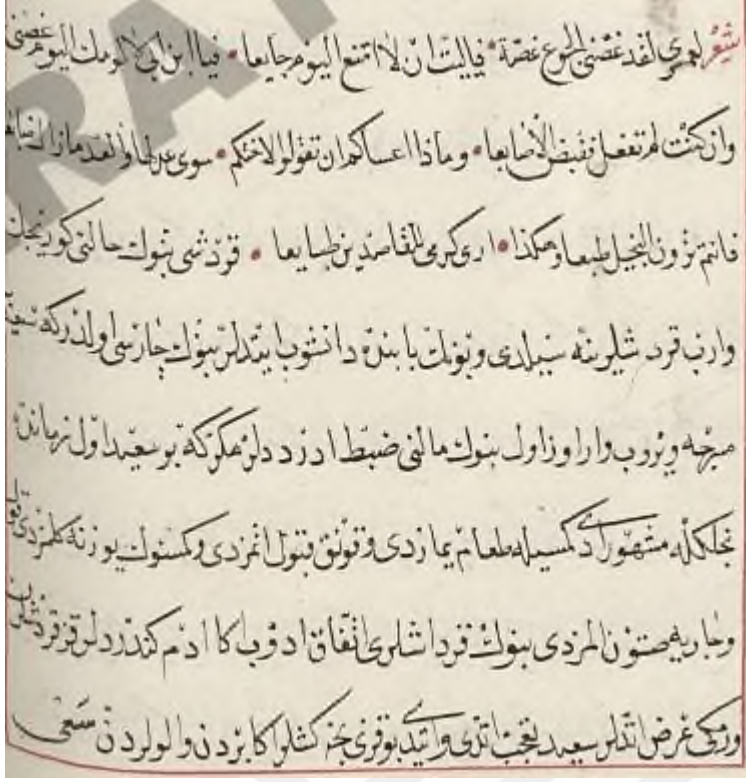 شعر لعمري لقد عضّني الجوع عضّة فياليت ان لا امنع اليوم جايعا فيا ابن ابي لا لومك اليوم عضني
وان كنت لم تفعل فقبض الاصابعا وماذا عساكم ان تقولو لاختكم سوى عذلها والعد مازال
فانتم ترون البخيل طبعا وهكذا ارى كرمي للقاصدين طبايعا قردشى بنوك حالنى كوريجك
وارب قردشلرينه سيلدى وبونك بابنده دانشوب ايتدلر بنوك چارسى اولدركه
مبرجه ويروب وارا وزاول بنوك مالنى ضبط ادزددلر مكركه بو سعيد اول زمانده
بخلكله مشهورادى كمسيله طعام يمازدى وقونق قبول اتمزدى وكمسنوك يوزنه كلمزدى
وجاريه صتون المزدى بنوك قرداشلرى اتفاق ادوب اكا ادم كندردلر قز قردشلرن
ورمكى غرض اتدلر سعيد تعجب اتدى وايتدى بو قزى نجه كشلر اكابردن والولردن سعى